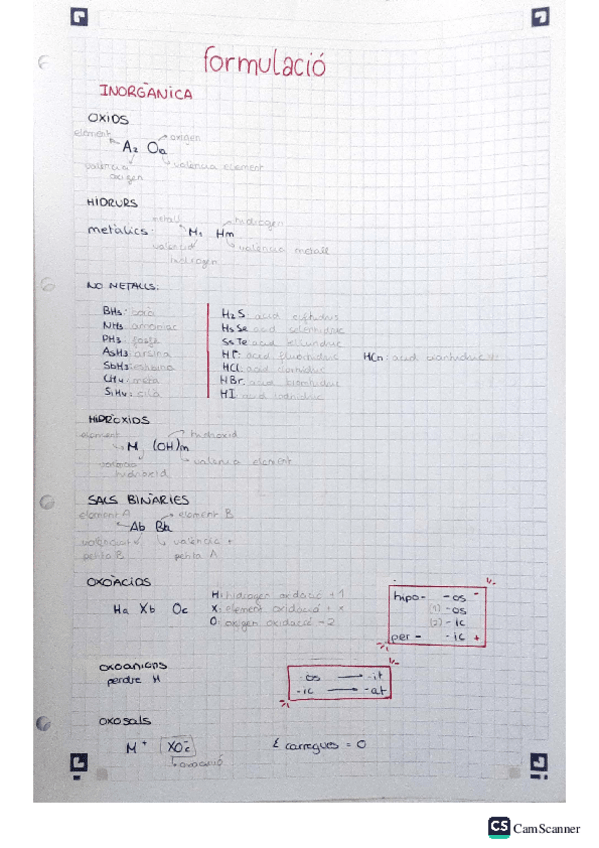 formulació
INORGÀNICA
OXIDS
element
oxigen
A₂ Oₐ
valència oxigen
valència element
HIDRURS
metall
hidrogen
metàlics: M₁ Hm
valència hidrogen
valència metall
NO METALLS:
BH₃: borà
NH₃ amoniac
PH3:
AsH3: arsina
SbH3:
CH₄:
SiH₄: silà
H₂S àcid
àcid selenhídric
àcid
HF: àcid fluorhídric
HCl àcid clorhídric
HBr àcid bromhídric
HI àcid iodhídric
HCn: àcid cianhídric
HIDRÒXIDS
element
hidròxid
M (OH)m
valència hidròxid
valència element
SALS BINÀRIES
element A
element B
Ab Ba
petita B
valència + petita A
OXOÀCIDS
Ha Xb Oc
H: hidrogen oxidació +1
X: element oxidació + x
O: oxigen oxidació -2
hipo- -os -
(1) -os
(2) -ic
per- -ic +
OXOANIONS
perdre H
-os → -it
-ic → -at
OXOSALS
M⁺ XOc⁻
oxoanió
Σ carregues = 0
CS CamScanner